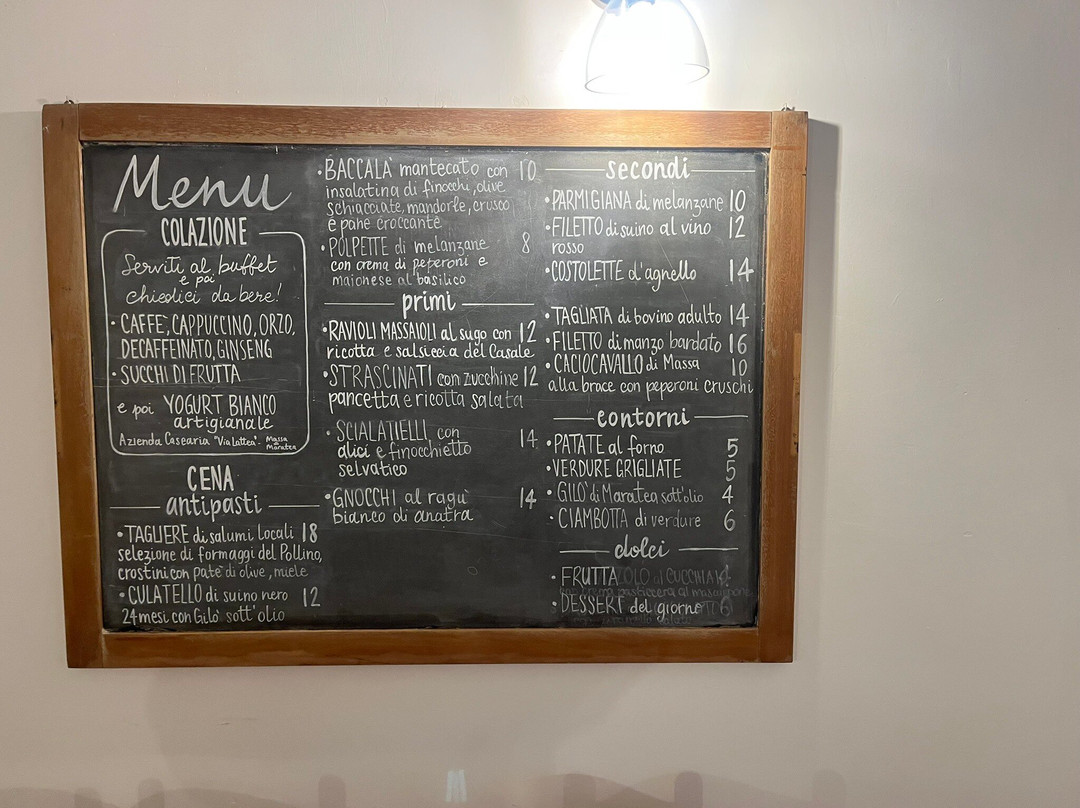 Menu
COLAZIONE
Serviti al buffet
e poi
chiedici da bere!
• CAFFE', CAPPUCCINO, ORZO,
DECAFFEINATO, GINSENG
• SUCCHI DI FRUTTA
e poi YOGURT BIANCO
artigianale
Azienda Casearia "Via lattea" - Massa di Maratea
CENA
antipasti
• TAGLIERE di salumi locali 18
selezione di formaggi del Pollino,
crostini con patè di olive, miele
• CULATELLO di suino nero 12
24 mesi con Gilò sott'olio
• BACCALA' mantecato con 10
insalatina di finocchi, olive
schiacciate, mandorle, crusco
e pane croccante
• POLPETTE di melanzane 8
con crema di peperoni e
maionese al basilico
primi
• RAVIOLI MASSAIOLI al sugo con 12
ricotta e salsiccia del Casale
• STRASCINATI con zucchine 12
pancetta e ricotta salata
• SCIALATIELLI con 14
alici e finocchietto
selvatico
• GNOCCHI al ragù 14
bianco di anatra
secondi
• PARMIGIANA di melanzane 10
• FILETTO di suino al vino 12
rosso
• COSTOLETTE d'agnello 14
• TAGLIATA di bovino adulto 14
• FILETTO di manzo bardato 16
• CACIOCAVALLO di Massa 10
alla brace con peperoni cruschi
contorni
• PATATE al forno 5
• VERDURE GRIGLIATE 5
• GILO' di Maratea sott'olio 4
• CIAMBOTTA di verdure 6
dolci
• FRUTTA 4
• DESSERT del giorno 6